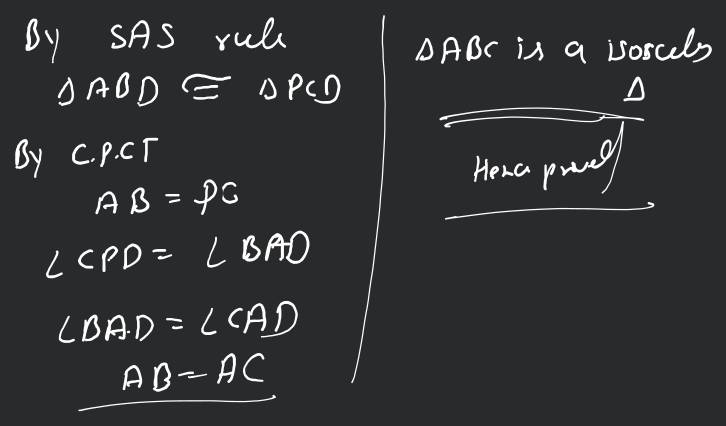 By SAS rule
∆ABD ≅ ∆PCD
By C.P.CT
AB = PC
∠CPD = ∠BAD
∠BAD = ∠CAD
AB = AC
∆ABC is a isosceles
∆
Hence proved